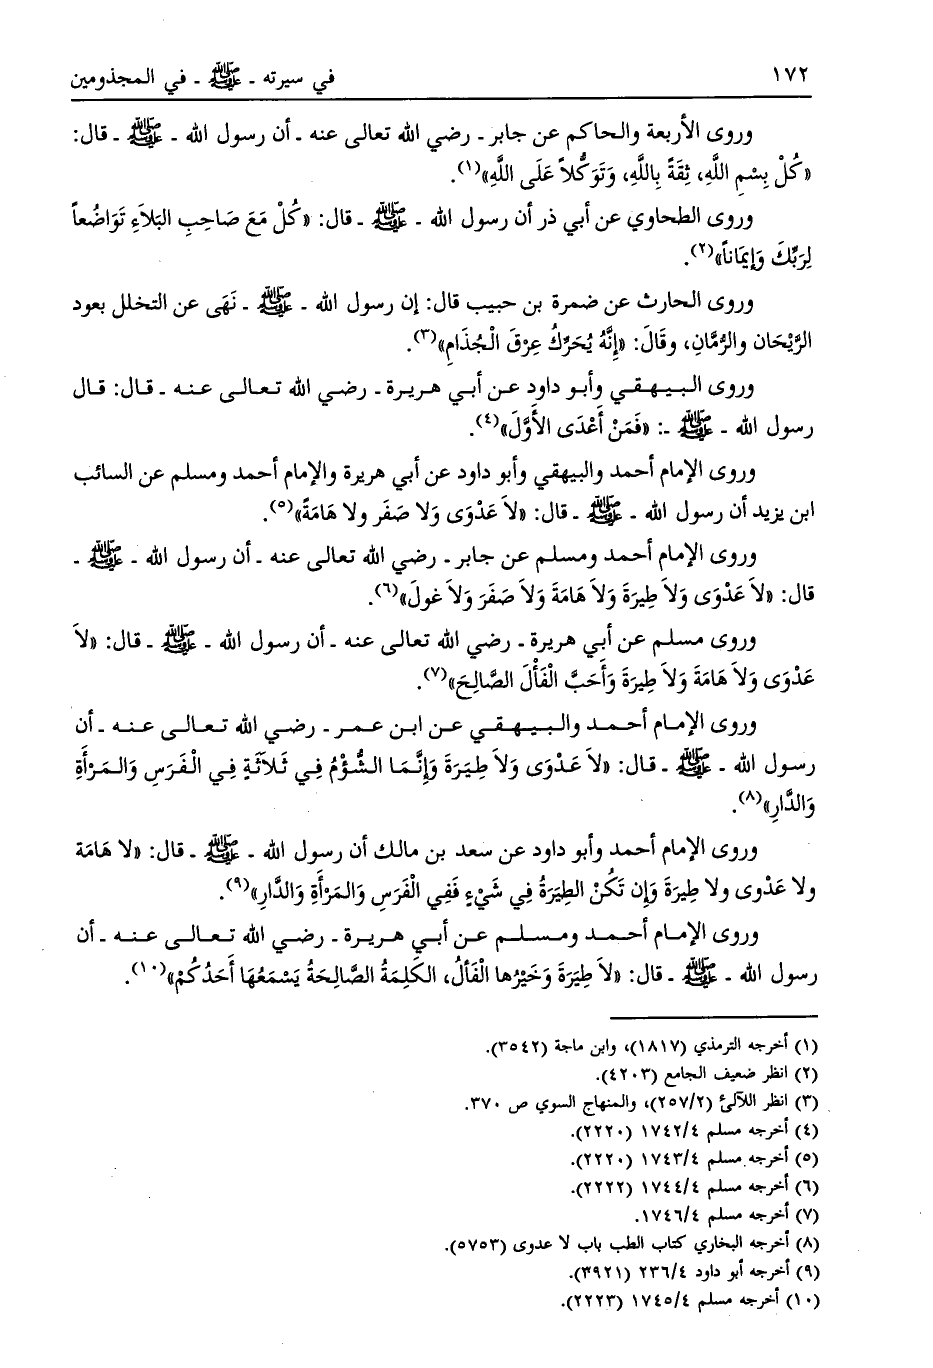 ١٧٢ في سيرته ـ ﷺ ـ في المجذومين
وروى الأربعة والحاكم عن جابر ـ رضي الله تعالى عنه ـ أن رسول الله ـ ﷺ ـ قال:
«كُلْ بِسْمِ اللَّهِ، ثِقَةً بِاللَّهِ، وَتَوَكُّلاً عَلَى اللَّهِ»(١).
وروى الطحاوي عن أبي ذر أن رسول الله ـ ﷺ ـ قال: «كُلْ مَعَ صَاحِبِ البَلاَءِ تَوَاضُعاً
لِرَبِّكَ وَإِيمَاناً»(٢).
وروى الحارث عن ضمرة بن حبيب قال: إن رسول الله ـ ﷺ ـ نَهَى عن التخلل بعود
الرَّيْحَان والرُّمَّانِ، وقَالَ: «إِنَّهُ يُحَرِّكُ عِرْقَ الْجُذَامِ»(٣).
وروى البيهقي وأبو داود عن أبي هريرة ـ رضي الله تعالى عنه ـ قال: قال
رسول الله ـ ﷺ ـ: «فَمَنْ أَعْدَى الأَوَّلَ»(٤).
وروى الإمام أحمد والبيهقي وأبو داود عن أبي هريرة والإمام أحمد ومسلم عن السائب
ابن يزيد أن رسول الله ـ ﷺ ـ قال: «لاَ عَدْوَى وَلا صَفَر ولا هَامَةً»(٥).
وروى الإمام أحمد ومسلم عن جابر ـ رضي الله تعالى عنه ـ أن رسول الله ـ ﷺ ـ
قال: «لاَ عَدْوَى وَلاَ طِيرَةَ وَلاَ هَامَةَ وَلاَ صَفَرَ وَلاَ غولَ»(٦).
وروى مسلم عن أبي هريرة ـ رضي الله تعالى عنه ـ أن رسول الله ـ ﷺ ـ قال: «لاَ
عَدْوَى وَلاَ هَامَةَ وَلاَ طِيرَةَ وَأَحَبَّ الْفَأْلَ الصَّالِحَ»(٧).
وروى الإمام أحمد والبيهقي عن ابن عمر ـ رضي الله تعالى عنه ـ أن
رسول الله ـ ﷺ ـ قال: «لاَ عَدْوَى وَلاَ طِيَرَةَ وَإِنَّمَا الشُّؤْمُ فِي ثَلاَثَةٍ فِي الْفَرَسِ وَالمَرْأَةِ
وَالدَّارِ»(٨).
وروى الإمام أحمد وأبو داود عن سعد بن مالك أن رسول الله ـ ﷺ ـ قال: «لا هَامَة
ولا عَدْوى ولا طِيرَةَ وَإِن تَكُنْ الطِيَرَةُ فِي شَيْءٍ فَفِي الْفَرَسِ وَالمَرْأَةِ وَالدَّارِ»(٩).
وروى الإمام أحمد ومسلم عن أبي هريرة ـ رضي الله تعالى عنه ـ أن
رسول الله ـ ﷺ ـ قال: «لاَ طِيَرَةَ وَخَيْرُها الْفَألُ، الكَلِمَةُ الصَّالِحَةُ يَسْمَعُهَا أَحَدُكُمْ»(١٠).
(١) أخرجه الترمذي (١٨١٧)، وابن ماجة (٣٥٤٢).
(٢) انظر ضعيف الجامع (٤٢٠٣).
(٣) انظر اللآلئ (٢٥٧/٢)، والمنهاج السوي ص ٣٧٠.
(٤) أخرجه مسلم ١٧٤٢/٤ (٢٢٢٠).
(٥) أخرجه مسلم ١٧٤٣/٤ (٢٢٢٠).
(٦) أخرجه مسلم ١٧٤٤/٤ (٢٢٢٢).
(٧) أخرجه مسلم ١٧٤٦/٤.
(٨) أخرجه البخاري كتاب الطب باب لا عدوى (٥٧٥٣).
(٩) أخرجه أبو داود ٢٣٦/٤ (٣٩٢١).
(١٠) أخرجه مسلم ١٧٤٥/٤ (٢٢٢٣).